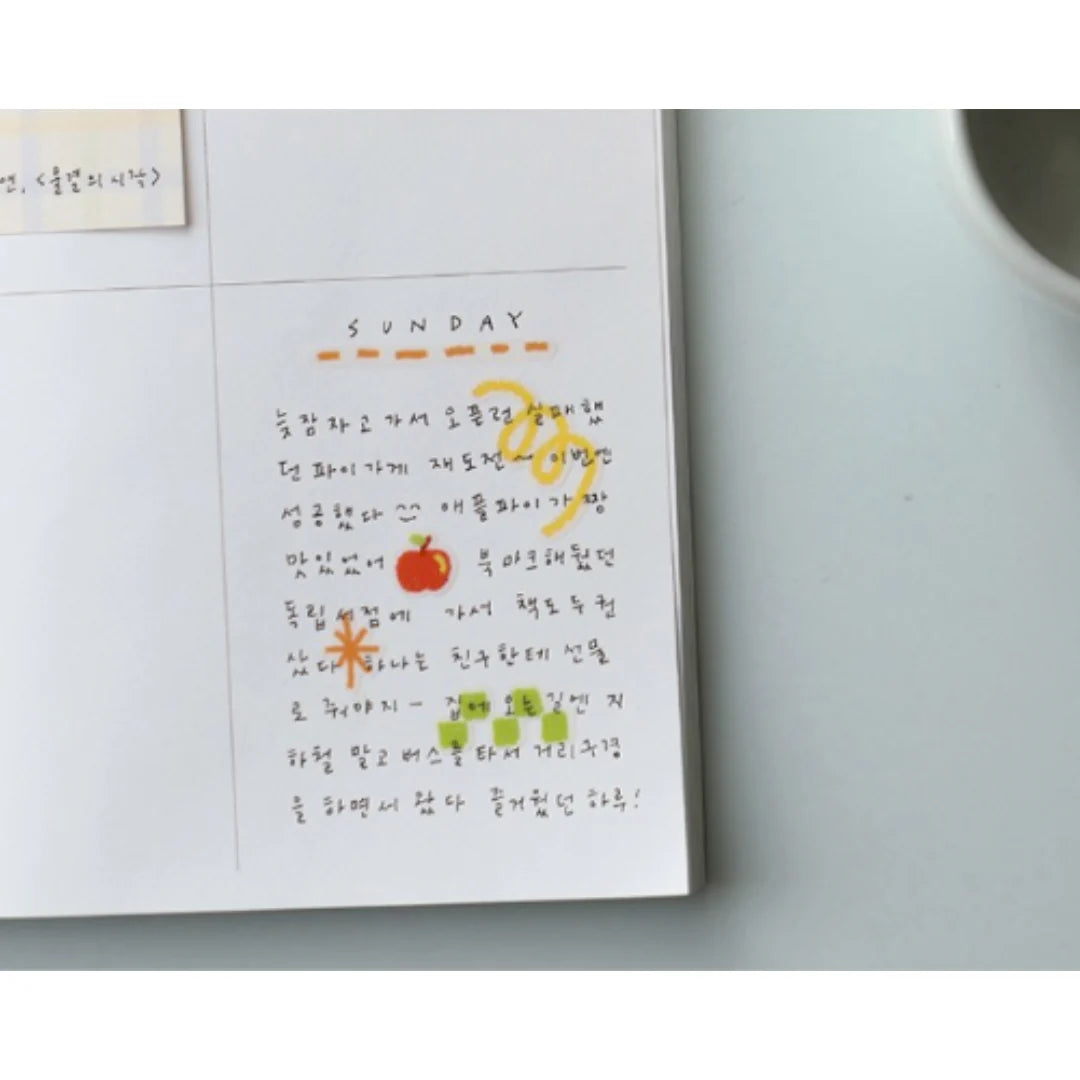 앤, <물결의 시각>
SUNDAY
늦잠자고 가서 오픈런 실패했
던 파이가게 재도전~ 이번엔
성공했다 애플파이가 짱
맛있었어 북마크해뒀던
독립서점에 가서 책도 두 권
샀다 하나는 친구한테 선물
로 줘야지- 집에 오는 길엔 지
하철 말고 버스를 타서 거리구경
을 하면서 왔다 즐거웠던 하루!